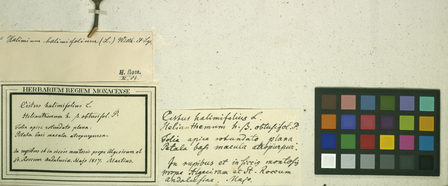 Halimium halimifolium (L.) Willk. & Lge
H. Boiss.
HERBARIUM REGIUM MONACENSE
Cistus halimifolius L.
Helianthemum h. β. obtusifol. P.
Folia apice rotundato plana.
Petala basi macula atropurpurea.
In rupibus et in siccis montosis prope Algeciram et
St. Roccum Andalusia. Majo 1837.
Cistus halimifolius L.
Helianthemum h. β. obtusifol. P.
Folia apice rotundato plana
Petala basi macula atropurpur.
In rupibus et in siccis montosis
prope Algecira et St. Roccum
Andalusiae. Majo.